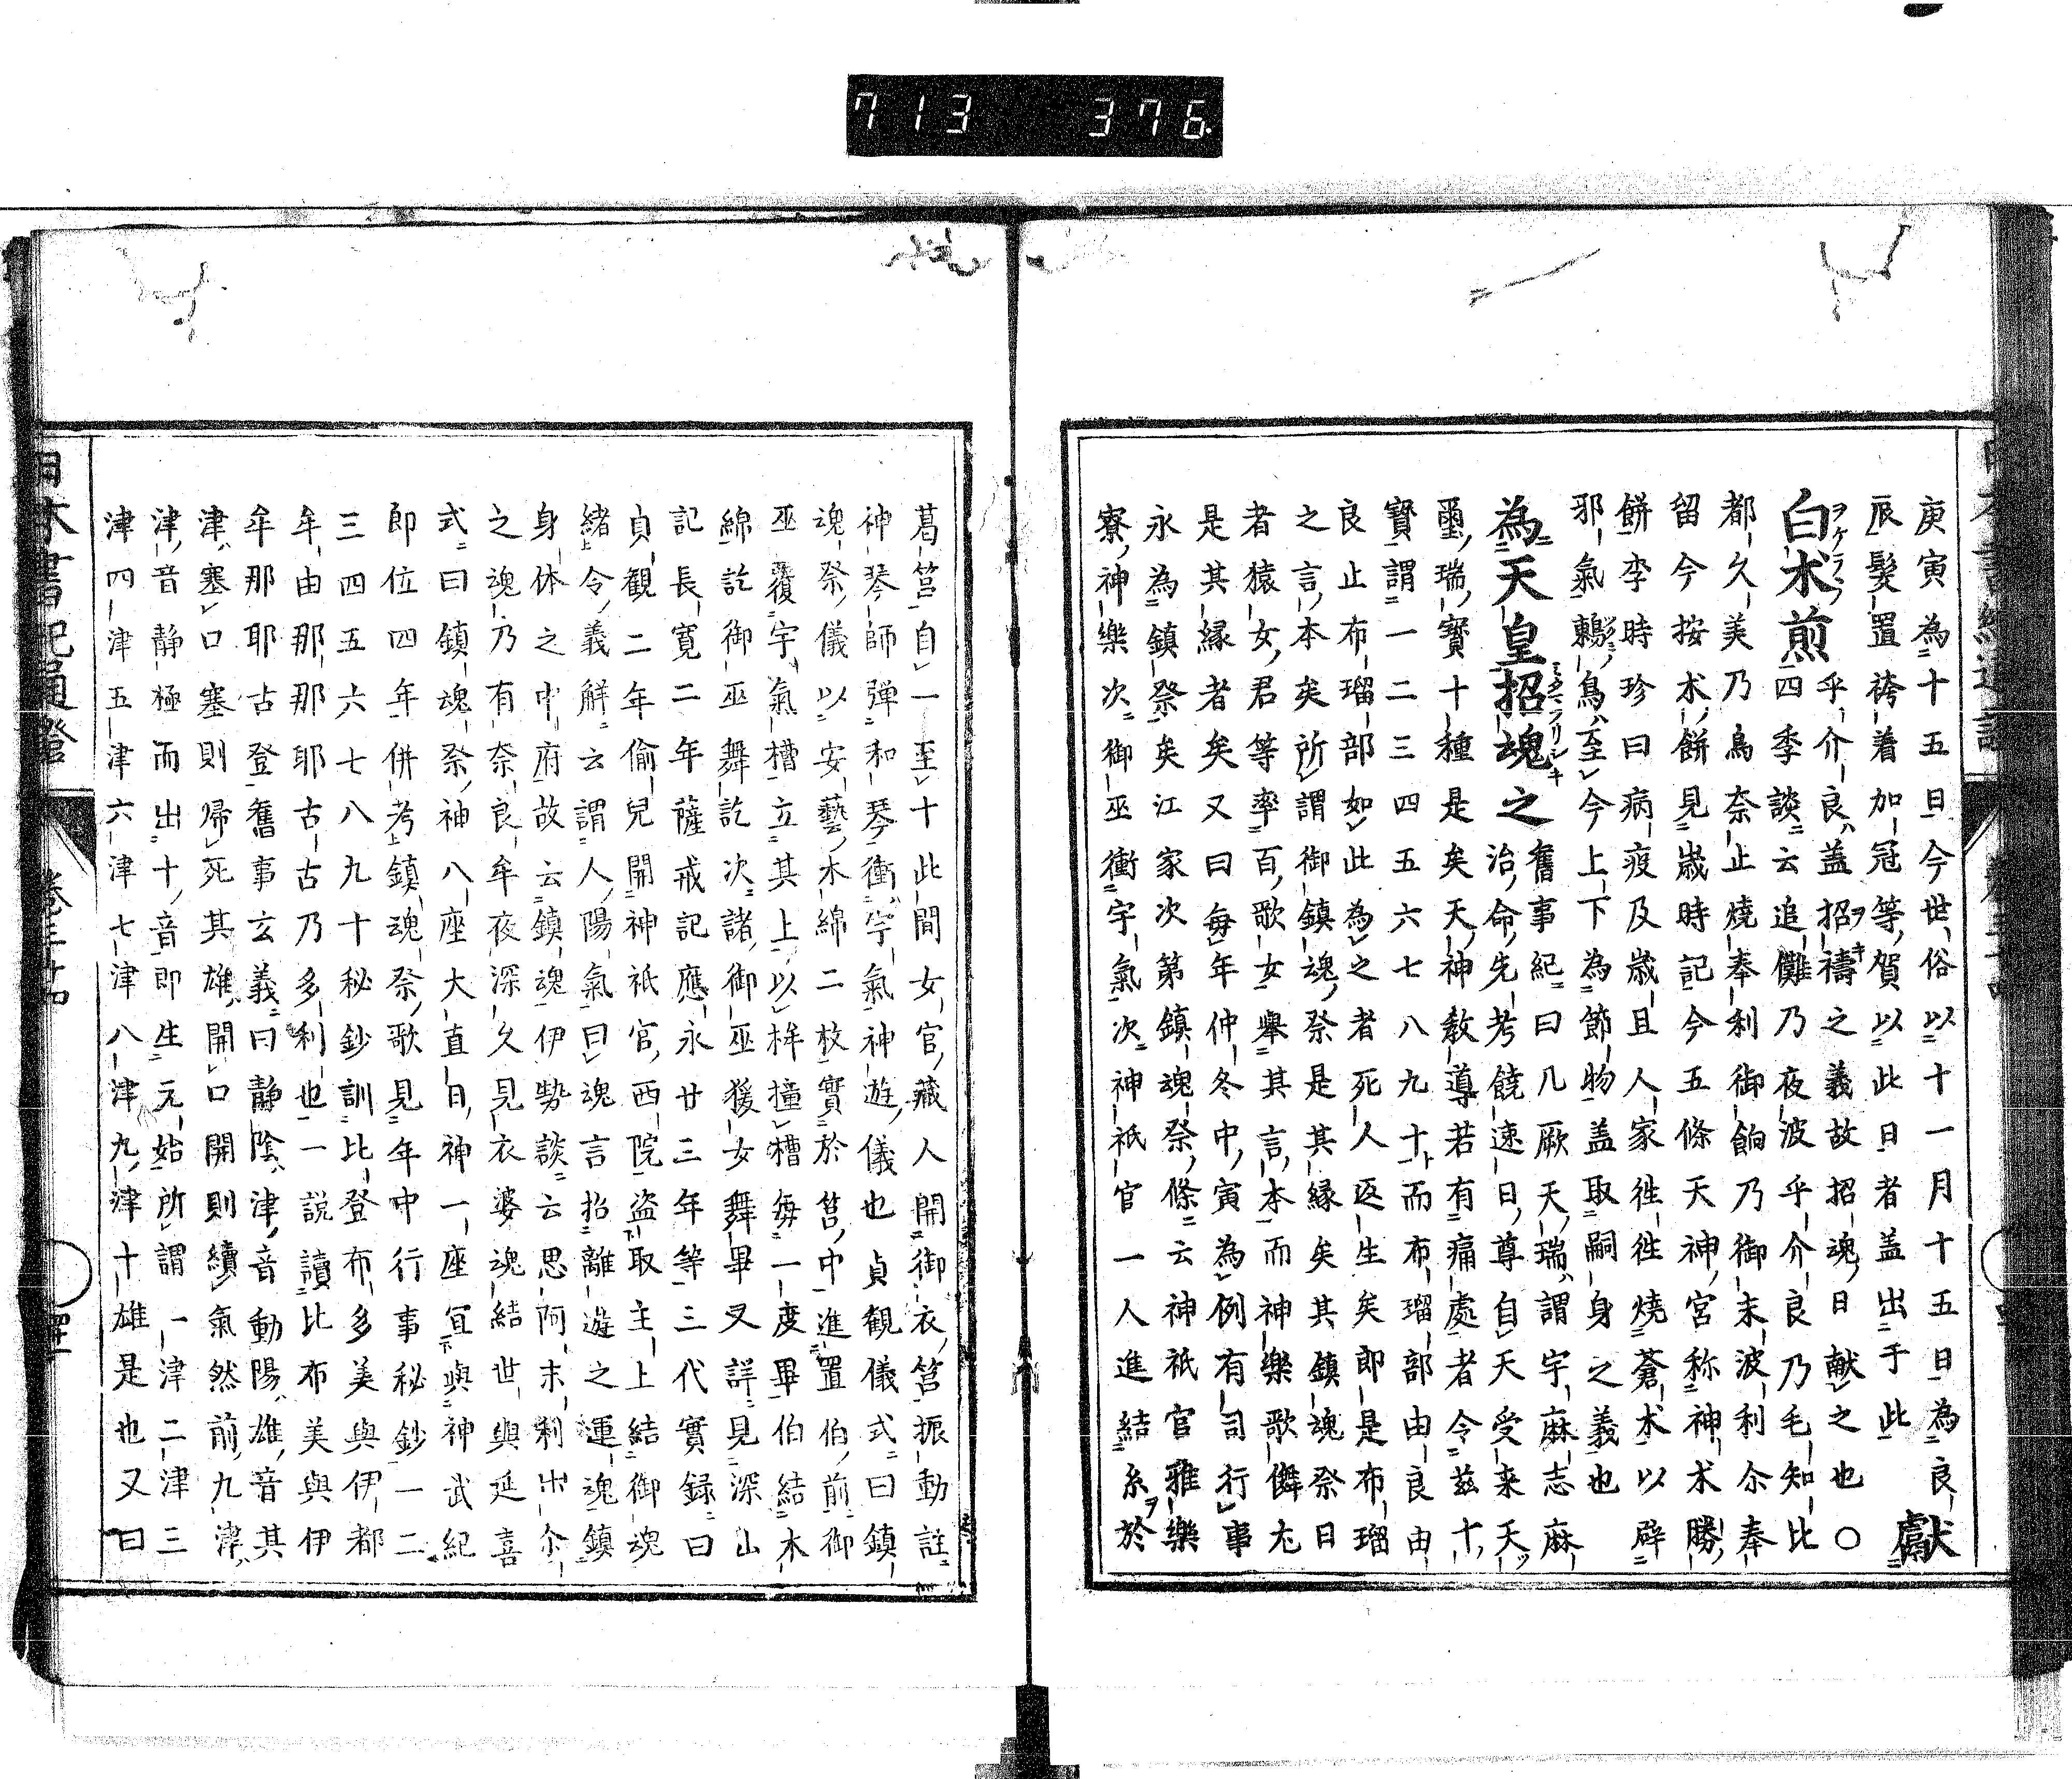 713 376
庚寅為十五日今世俗以十一月十五日為良
辰髪置袴着加冠等賀以此日者盖出于此 獻
白朮煎 乎介良盖招禱之義故招魂日献之也〇
四季談云追儺乃夜波乎介良乃毛知比
都久美乃鳥奈止燒奉利御餉乃御末波利尒奉
留今按朮餅見歳時記今五條天神宮称神朮勝
餅李時珍曰病疫及歳且人家徃徃燒蒼朮以辟
邪氣鶫鳥至今上下為節物盖取嗣身之義也
為天皇招魂之 舊事紀曰凡厥天瑞謂宇麻志麻
治命先考饒速日尊自天受来天
璽瑞寶十種是矣天神教導若有痛處者令玆十
寳謂一二三四五六七八九十而布瑠部由良由
良止布瑠部如此為之者死人返生矣即是布瑠
之言本矣所謂御鎮魂祭是其縁矣其鎮魂祭日
者猿女君等率百歌女擧其言本而神樂歌儛尤
是其縁者矣又曰毎年仲冬中寅為例有司行事
永為鎮祭矣江家次第鎮魂祭條云神祇官雅樂
寮神樂次御巫衝宇氣次神祇官一人進結糸於
葛筥自一至十此間女官藏人開御衣筥振動註
神琴師彈和琴衝宇氣神遊儀也貞観儀式曰鎮
魂祭儀以安藝木綿二枚實於筥中進置伯前御
巫覆宇氣槽立其上以桙撞槽毎一度畢伯結木
綿訖御巫舞訖次諸御巫猨女舞畢又詳見深山
記長寛二年薩戒記應永廿三年等三代實録曰
貞観二年偷兒開神祇官西院盗取主上結御魂
緒令義解云謂人陽氣曰魂言招離遊之運魂鎮
身体之中府故云鎮魂伊勢談云思阿末利出尒
之魂乃有奈良牟夜深久見衣婆魂結世與延喜
式曰鎮魂祭神八座大直日神一座冝與神武紀
即位四年併考鎮魂祭歌見年中行事秘鈔一二
三四五六七八九十秘鈔訓比登布多美與伊都
牟由那那耶古古乃多利也一説讀比布美與伊
牟那耶古登舊事玄義曰靜陰津音動陽雄音其
津塞口塞則帰死其雄開口開則續氣然前九津
津音静極而出十音即生元始所謂一津二津三
津四津五津六津七津八津九津十雄是也又曰
日本書紀通證